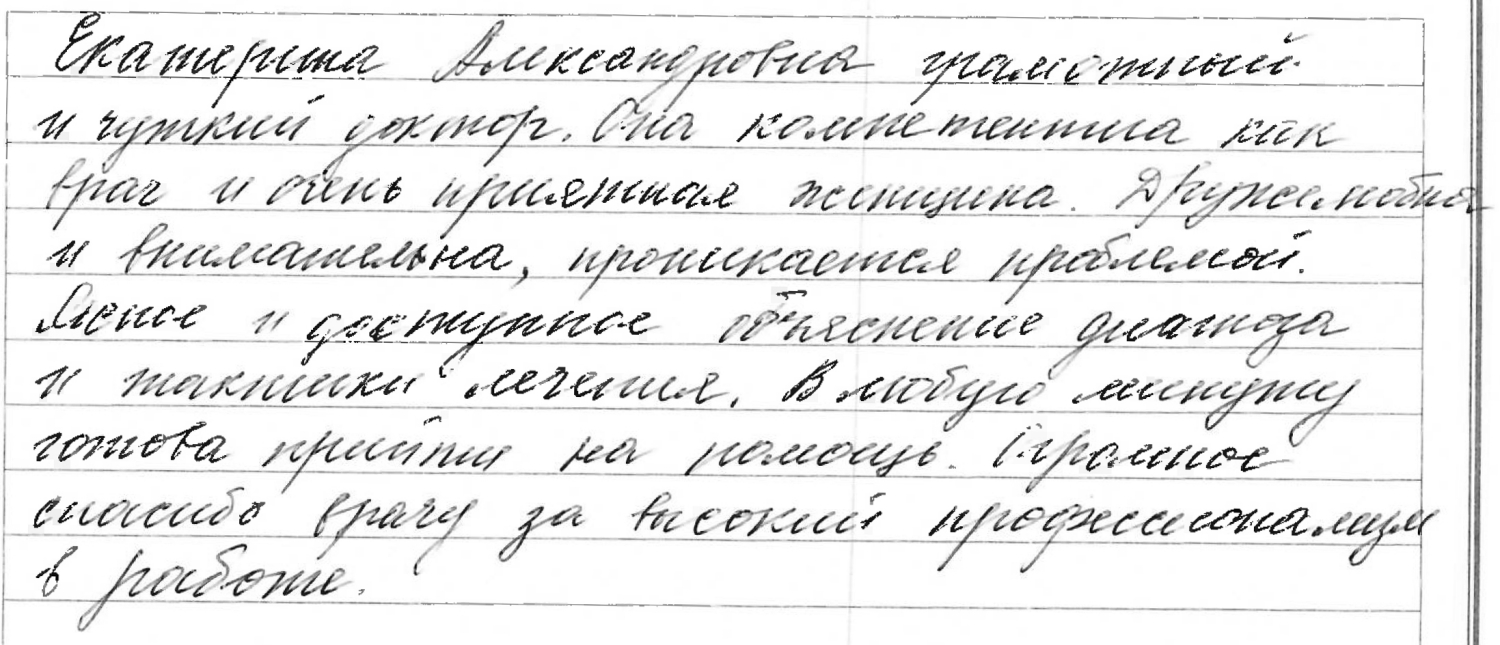 Екатерина Александровна грамотный
и чуткий доктор. Она компетентна как
врач и очень приятная женщина. Дружелюбна
и внимательна, проникается проблемой.
Ясное и доступное объяснение диагноза
и тактики лечения. В любую минуту
готова прийти на помощь. Огромное
спасибо врачу за высокий профессионализм
в работе.